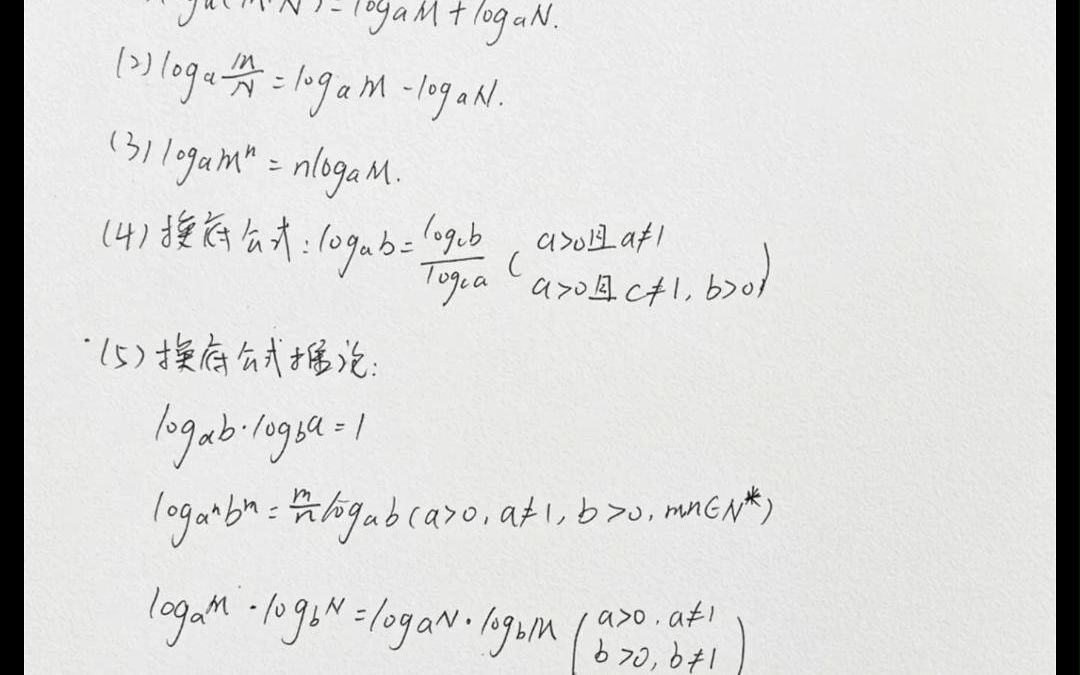 loga(M·N)=logaM+logaN.
(2) loga M/N = logaM - logaN.
(3) logaMⁿ = nlogaM.
(4)换底公式: logab = logcb/logca ( a>0且a≠1
a>0且c≠1, b>0)
(5) 换底公式推论:
logab·logba=1
logaⁿbᵐ = m/n logab (a>0, a≠1, b>0, mn∈N*)
logaM·logbN=logaN·logbM ( a>0, a≠1
b>0, b≠1 )